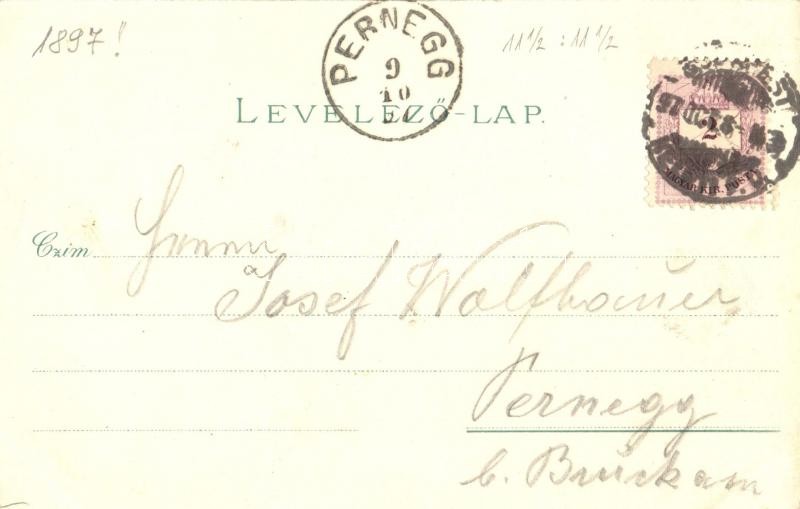 1897!
PERNEGG
9
10
97
11 1/2 : 11 1/2
LEVELEZŐ-LAP.
97 OCT
2
MAGYAR KIR. POSTA
Czim
Herrn
Josef Wolfbauer
Pernegg
b. Brück a/m